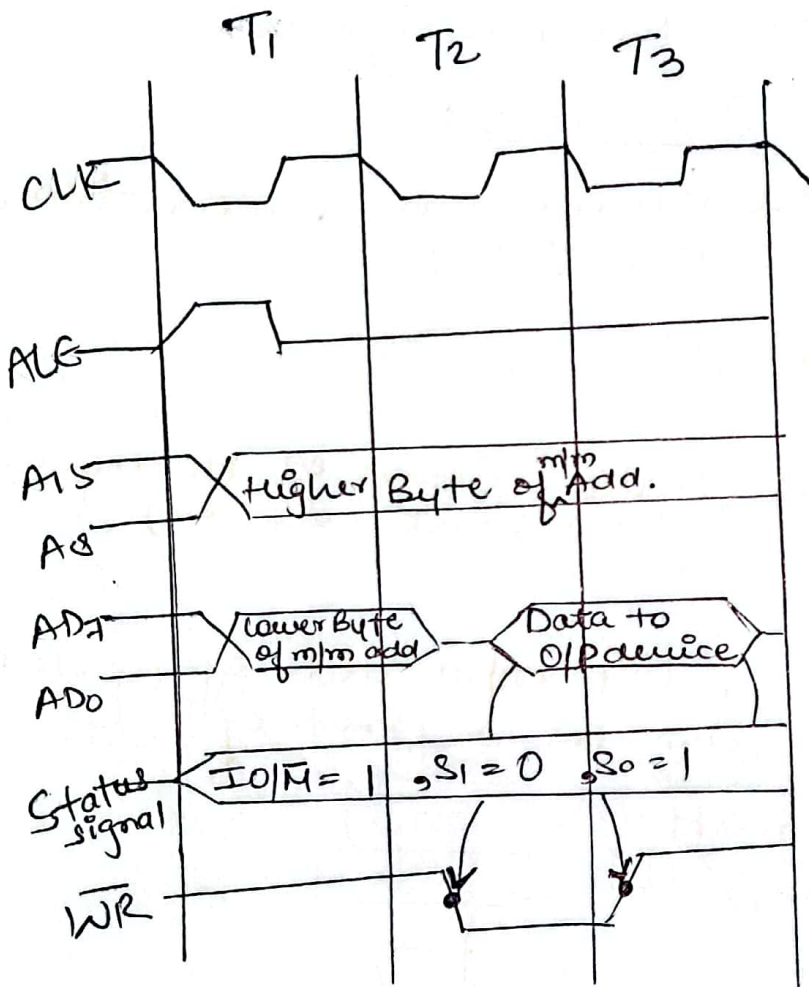 T1 T2 T3
CLK
ALE
A15
A8
Higher Byte of m/m Add.
AD7
AD0
Lower Byte
of m/m add
Data to
O/P device
Status
signal
IO/M̅ = 1 , S1 = 0 , S0 = 1
W̅R̅